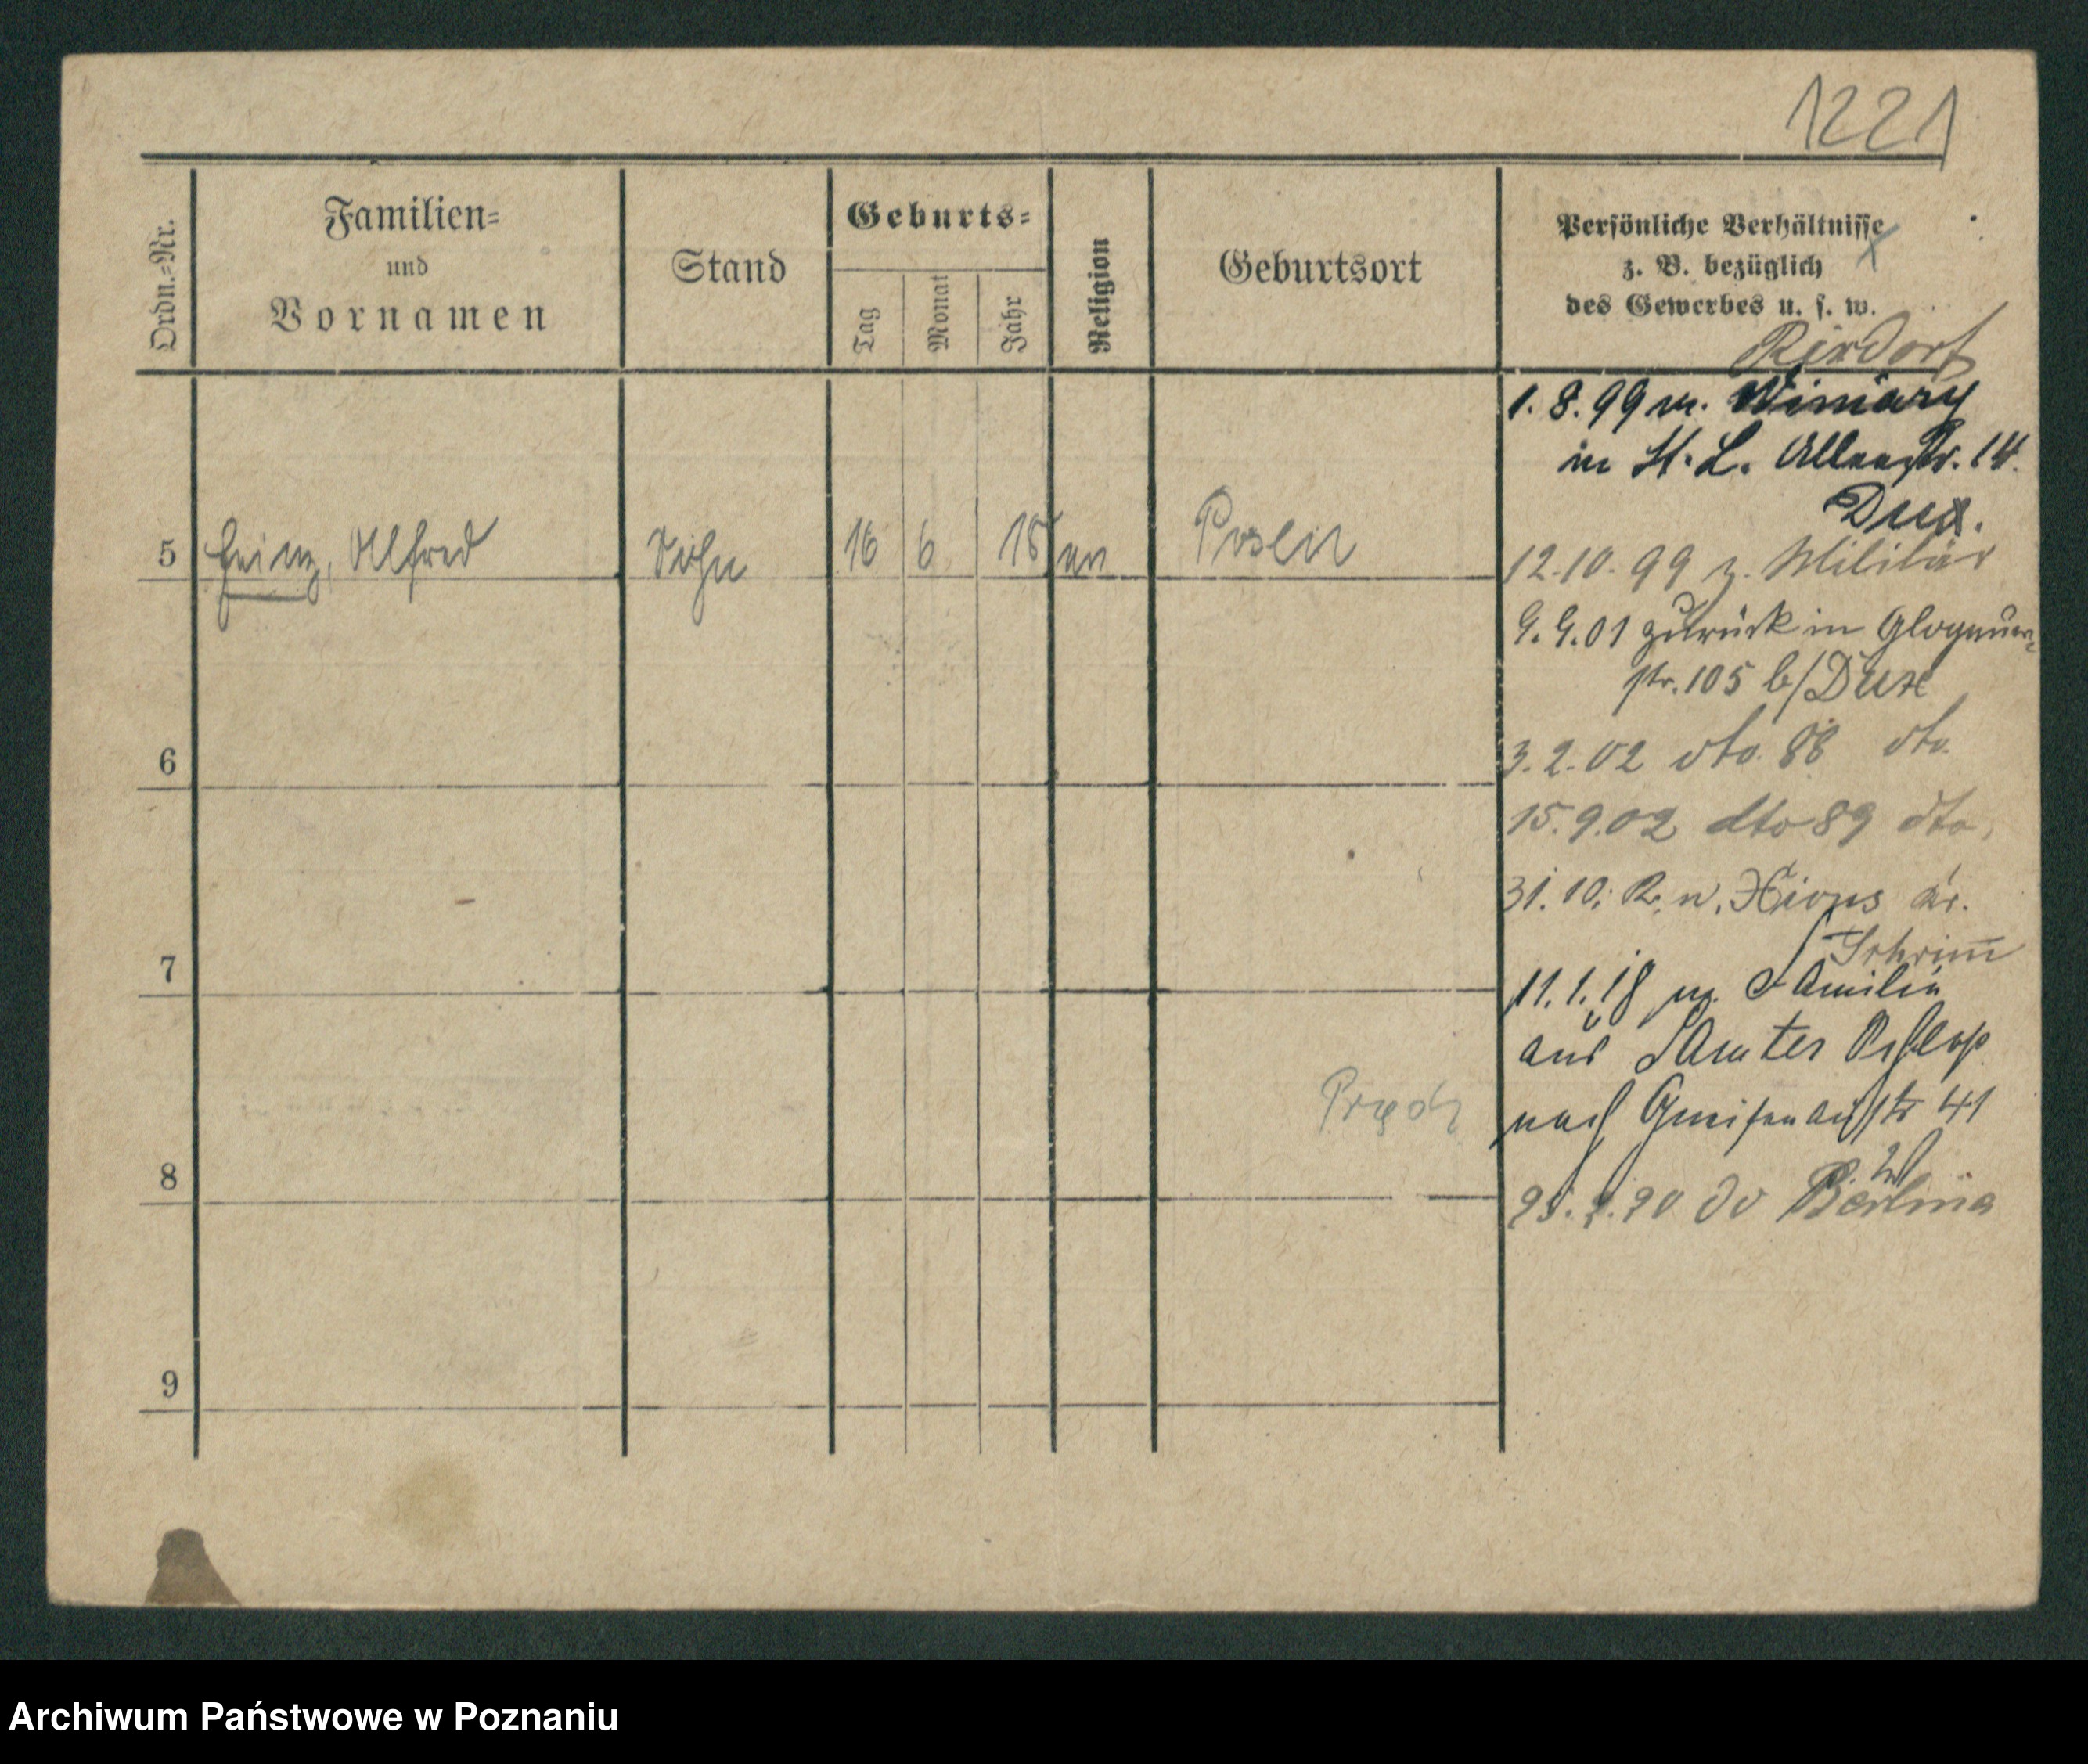 1221
Ordn.-Nr.
Familien-
und
Vornamen
Stand
Geburts-
Tag
Monat
Jahr
Religion
Geburtsort
Persönliche Verhältnisse
z. B. bezüglich
des Gewerbes u. s. w.
Rixdorf
1. 8. 99 v. Winiary
in St. L. Alleestr. 14.
Dux.
5 Heinz, Alfred Sohn 16 6 18 ev Posen
12. 10. 99 z. Militär
9. 9. 01 zurück in Glogauer-
str. 105 b/Dux
6
3. 2. 02 dto. 88 dto
15. 9. 02 dto 89 dto,
31. 10. R. n. Xions Kr.
Schrim̄
7
11. 1. 18 m. Familie
aus Samter
nach Gneisenaustr 41
8
20 do Berlina
9
Archiwum Państwowe w Poznaniu